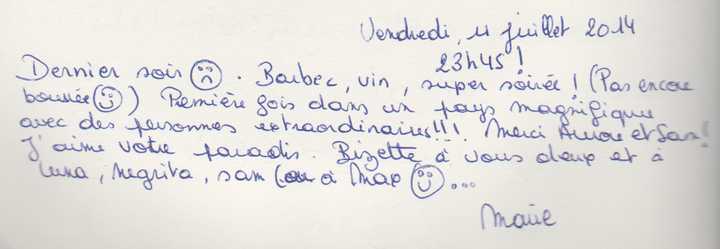 Vendredi, 11 juillet 2014
23h45!
Dernier soir ☹. Barbec, vin, super soirée! (Pas encore
bourrée ☺) Première fois dans un pays magnifique
avec des personnes extraordinaires!!!. Merci et
J'aime votre paradis. Bizette à vous deux et à
Luna, Negrita, sam (ou à Max ☺...
Marie